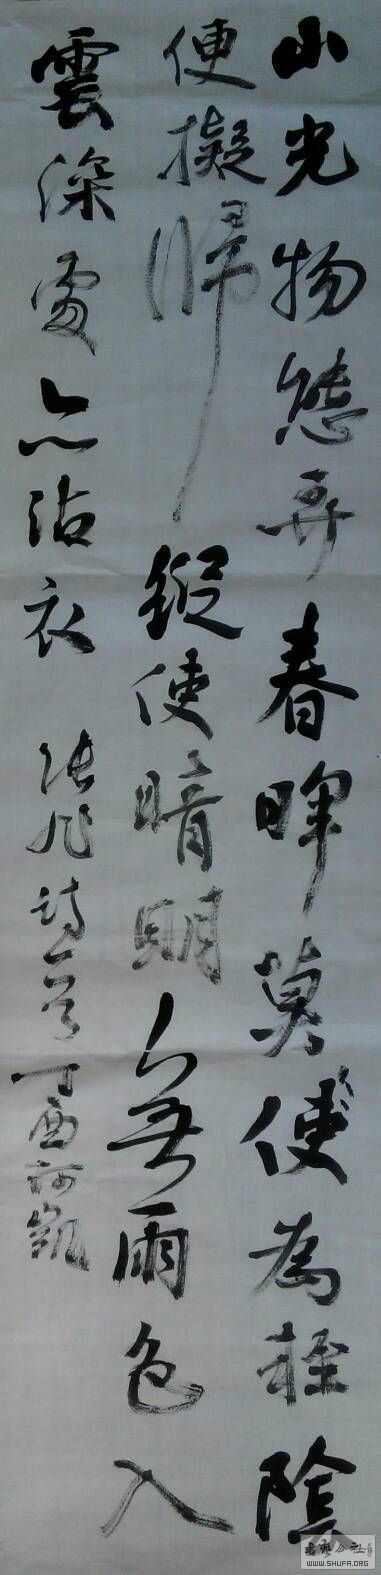 山光物態弄春暉莫使為輕陰
便擬歸縱使晴明無雨色入
雲深處亦沾衣 張旭詩一首 丁酉 凱
书艺公社
WWW.SHUFA.ORG